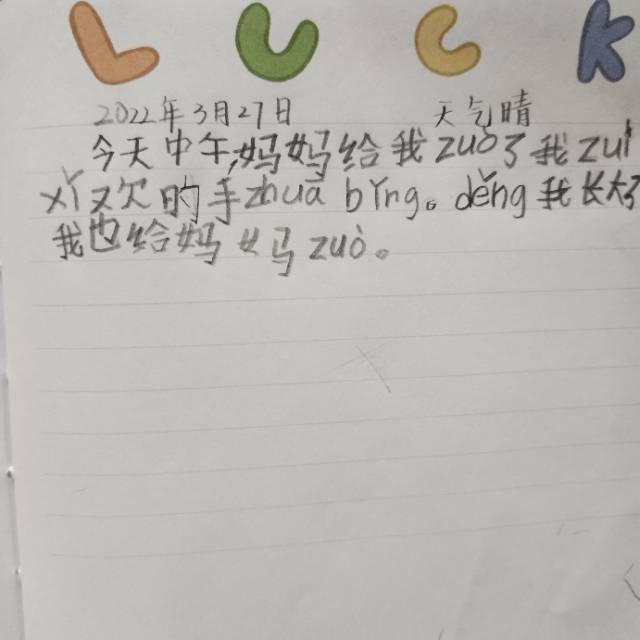 LUCK
2022年3月27日 天气晴
今天中午,妈妈给我zuò了我zuì
xǐ又欠的手zhuā bǐng。děng我长大了
我也给妈妈zuò。